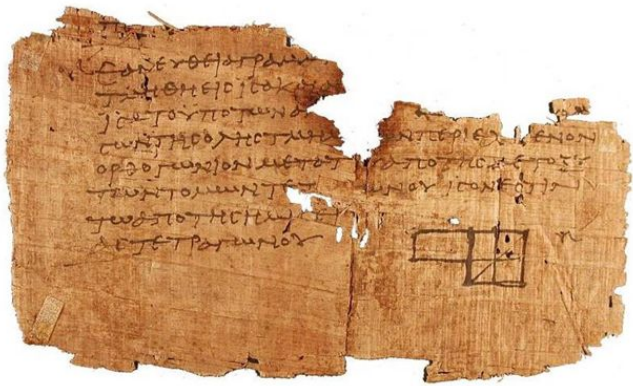 ΕΑΝ ΕΥΘΕΙΑ ΓΡΑΜΜ
ΤΜΗΘΗ ΕΙC ΙCΑ ΚΑΙ
ΙCΑ ΤΟ ΥΠΟ ΤΩΝ Α
CΩΝ ΤΗC ΟΛΗC ΤΜΗ ΩΝ ΠΕΡΙΕΧ ΜΕΝΟΝ
ΟΡΘΟΓΩΝΙΟΝ ΜΕΤΑ ΤΟΥ ΑΠΟ ΤΗC ΜΕΤΟΞΥ
ΤΩΝ ΤΟΜΩΝ ΤΕΤ ΩΝΟΥ ΙCΟΝ ΕCΤΙΝ
ΤΩ ΑΠΟ ΤΗC ΗΜΙCΕΙ
ΑC ΤΕΤΡΑΓΩΝΟΥ